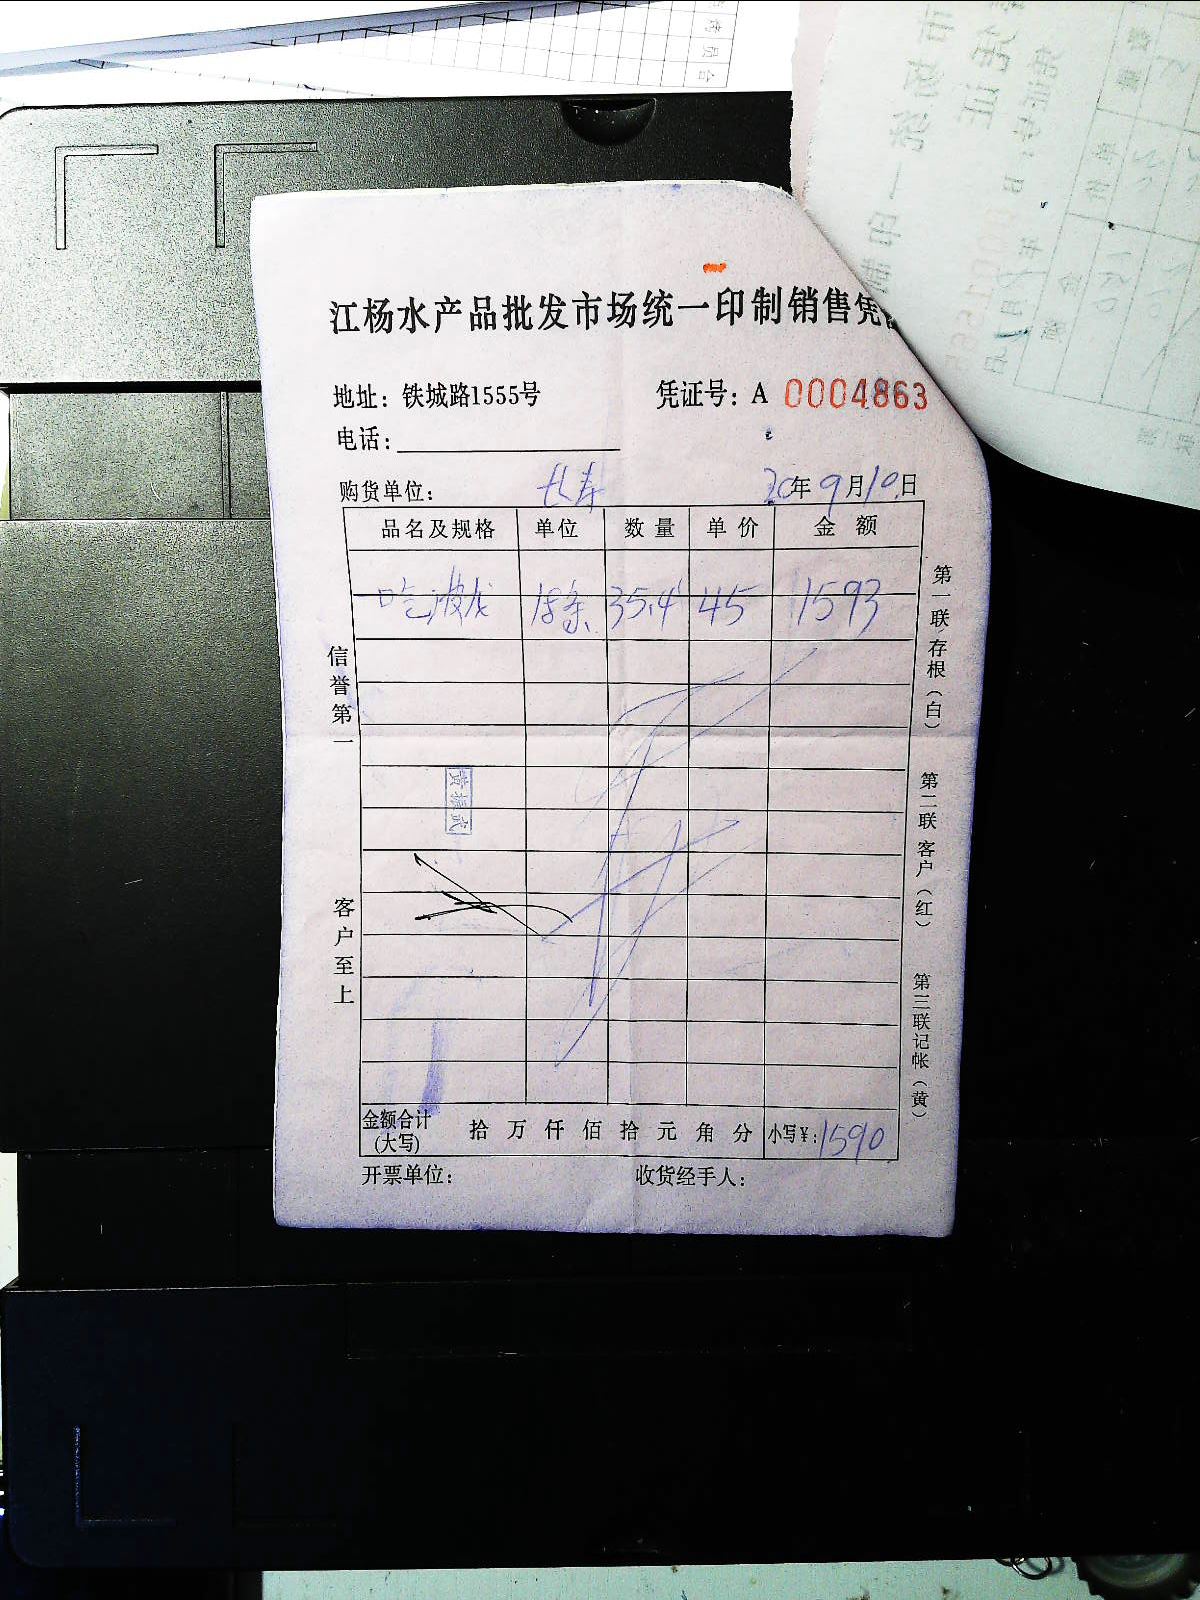 江杨水产品批发市场统一印制销售凭
地址：铁城路1555号 凭证号：A 0004863
电话：
购货单位： 长寿 20年9月10日
品名及规格 单位 数量 单价 金额
吃波龙 18条 35.4 45 1593
信誉第一
客户至上
第一联存根（白）
第二联客户（红）
第三联记帐（黄）
黄振武
金额合计(大写) 拾 万 仟 佰 拾 元 角 分 小写¥：1590
开票单位： 收货经手人：